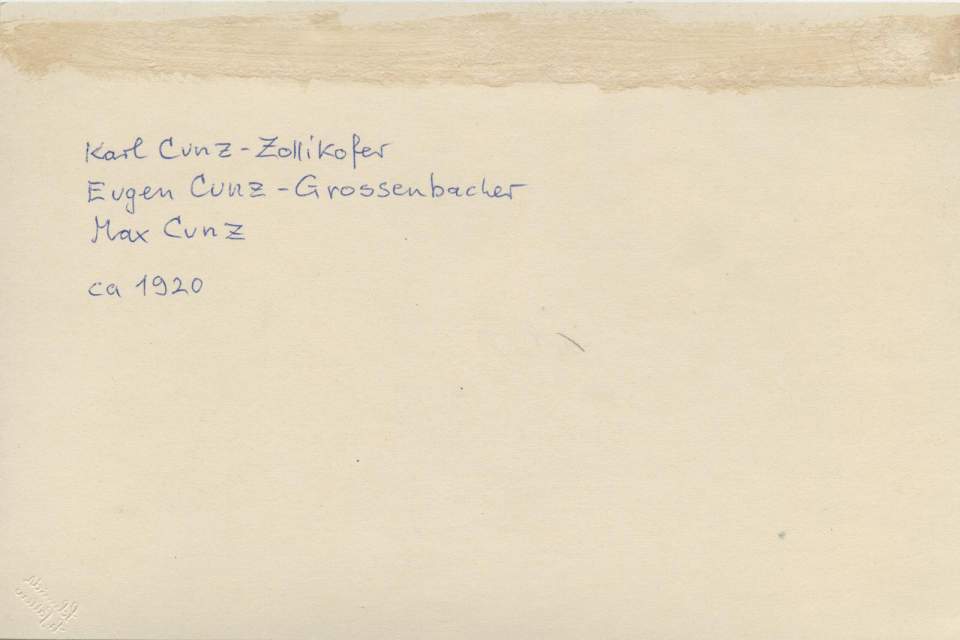 Karl Cunz-Zollikofer
Eugen Cunz-Grossenbacher
Max Cunz
ca 1920